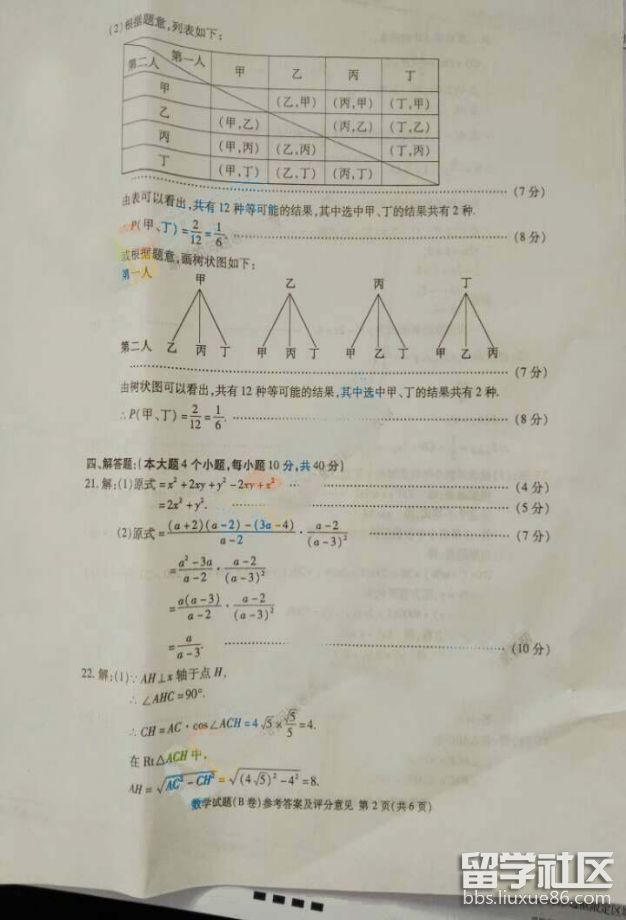 (2)根据题意,列表如下:
第二人 第一人 甲 乙 丙 丁
甲 (乙,甲) (丙,甲) (丁,甲)
乙 (甲,乙) (丙,乙) (丁,乙)
丙 (甲,丙) (乙,丙) (丁,丙)
丁 (甲,丁) (乙,丁) (丙,丁)
(7分)
由表可以看出,共有12种等可能的结果,其中选中甲、丁的结果共有2种.
P(甲、丁)=2/12=1/6. (8分)
或根据题意,画树状图如下:
第一人 甲 乙 丙 丁
第二人 乙 丙 丁 甲 丙 丁 甲 乙 丁 甲 乙 丙
(7分)
由树状图可以看出,共有12种等可能的结果,其中选中甲、丁的结果共有2种.
∴P(甲、丁)=2/12=1/6. (8分)
四、解答题:(本大题4个小题,每小题10分,共40分)
21.解:(1)原式=x²+2xy+y²-2xy+x² (4分)
=2x²+y². (5分)
(2)原式=(a+2)(a-2)-(3a-4)/a-2·a-2/(a-3)² (7分)
=a²-3a/a-2·a-2/(a-3)²
=a(a-3)/a-2·a-2/(a-3)²
=a/a-3. (10分)
22.解:(1)∵AH⊥x轴于点H,
∴∠AHC=90°.
∴CH=AC·cos∠ACH=4√5×√5/5=4.
在Rt△ACH中,
AH=√AC²-CH²=√(4√5)²-4²=8.
数学试题(B卷)参考答案及评分意见 第2页(共6页)
留学社区
bbs.liuxue86.com